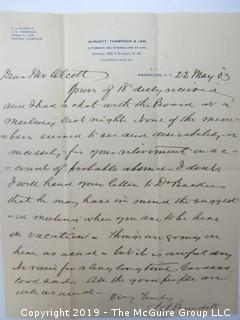 BURDETT, THOMPSON & LAW,
ATTORNEYS AND COUNSELLORS AT LAW
WASHINGTON, D. C. 22 May 03
Dear Mr Alcott
Yours of 18 duly received
and I had a chat with the Board at a
meeting last night. None of the mem-
bers seemed to see any desirability or
necessity for your retirement on ac-
count of probable absence. I doubt
I will hand your letter to Dr
that he may have in mind the suggest-
ed meeting when you are to be here
on vacation. Things are going on
here as usual - but it is awful dry
No rain for a long long time. Gardens
look sad. All the good people are
well as usual.
Very truly
S S Burdett
Copyright 2019 - The McGuire Group LLC